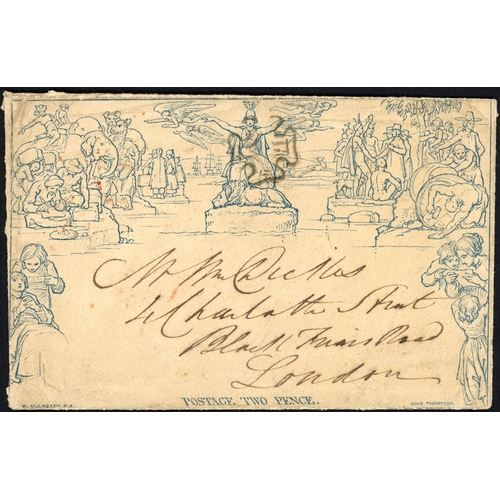 Mr Wm Dickes
4 Charlotte Street
Black Friars Road
London
POSTAGE TWO PENCE.
W. MULREADY, R.A.
JOHN THOMPSON